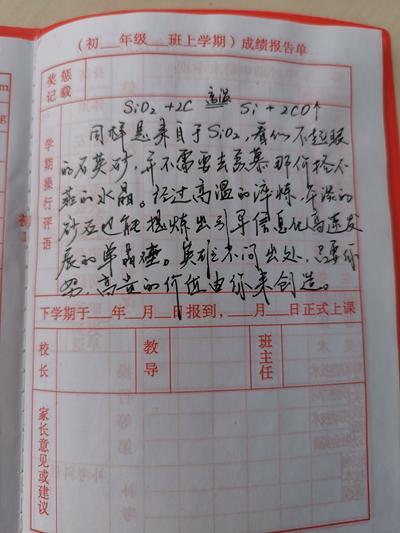 （初__年级__班上学期）成绩报告单
奖惩记载
SiO₂ +2C 高温 Si + 2CO↑
学期操行评语
同样是来自于SiO₂，看似不起眼
的石英砂，并不需要去羡慕那价格不
菲的水晶。经过高温的淬炼，平淡的
砂石也能提炼出引导信息化高速发
展的单晶硅。英雄不问出处，只要你
努力，高贵的价值由你来创造。
下学期于__年__月__日报到，__月__日正式上课
校长
教导
班主任
家长意见或建议